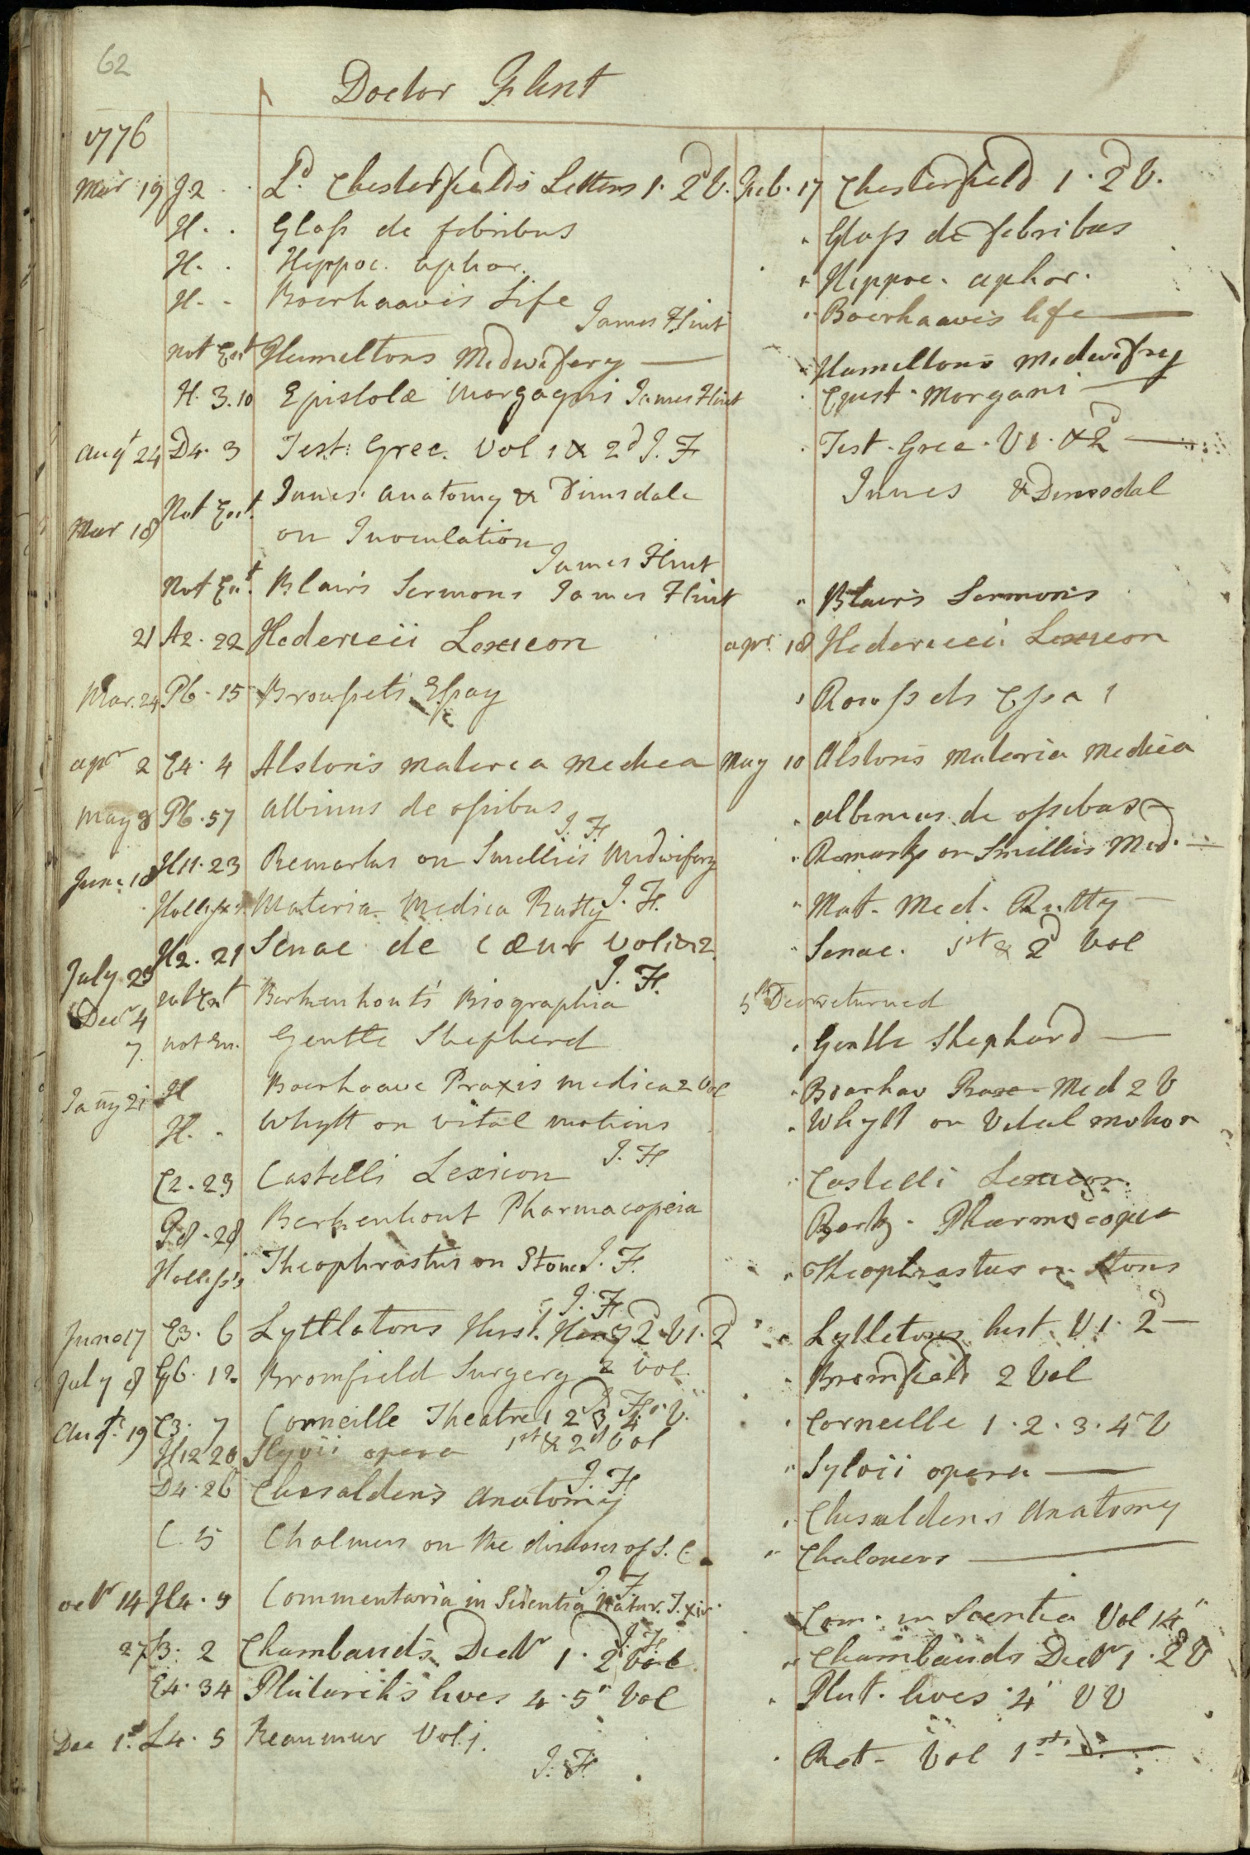 62
Doctor Flint
1776
Mar 19 J2 Ld. Chesterfields Letters 1. 2d V. Feb. 17 Chesterfield 1. 2d V.
H. Glass de febribus " Glass de febribus
H. Hippoc. aphor. " Hippoc. aphor.
H. Boerhaavis Life " Boerhaaves life
James Flint
Not Ent Hameltons Midwifery " Hameltons Medwifry
H. 3. 10 Epistolæ Morgagni James Flint Epist. Morgani
Augt 24 D4. 3 Test: Grec. Vol 1 & 2d J. F Test. Grec. V1. & 2d
Not Ent. Innes' Anatomy & Dimsdale Innes & Dimsdal
Mar 18 on Inoculation
James Flint
Not Ent. Blairs Sermons James Flint " Blairs Sermons
21 A2. 22 Hedericii Lexicon apr. 18 Hedericii Lexicon
Mar. 24 P6. 15 Broussets Essay " Roussets Essa
apr 2 E4. 4 Alstons materia medica May 10 Alstons Materia Medica
May 8 P6. 57 Albinus de ossibus " albinus de ossibus
J. F.
June 18 H11. 23 Remarks on Smellies Midwifery " Remarks on Smillies Mid.
Materia Medica Rutty J. F. " Mat. Med. Rutty
July 29 H2. 21 Senac de cœur Vol 1 & 2 " Senac. 1st & 2d Vol
J. F.
Decr 4 not Ent Berkenhouts Biographia 5th Decr returned
7. not En. Gentle Shepherd " Gentle Shephard
Jany 21 H Boerhaave Praxis medica 2 Vol " Boerhav Prax Med 2 V
H. Whytt on vital motions " Whytt on Vital motion
J. F.
C2. 23 Castelli Lexicon " Castelli Lexicon.
P8. 28 Berkenhout Pharmacopeia Berk. Pharmacopia
Theophrastus on Stones J. F. " Theophrastus on Stons
J. F.
June 17 E3. 6 Lyttlatons Hist. Heny 2d V1. 2d " Lylletons hist. V1. 2d
July 8 G6. 12 Bromfield Surgery 2 Vol. " Bromfield 2 Vol
Augt. 19 E3. 7 Corneille Theatre 1 2 3, 4. V. " Corneille 1. 2. 3. 4 V
H12 20 Sylvii opera 1st & 2d Vol " Sylvii opera
J. F.
D4. 26 Cheseldens Anatomy " Cheseldens Anatomy
C. 5 Chalmers on the diseases of S. C. " Chalmers
J. F.
octr 14 H4. 9 Commentaria in Scientia Natur. T. xiv. Com. in Scentia Vol 14
J. F.
27 2 Chambauds Dictr 1. 2d Vol " Chambauds Dictr 1. 2d V
E4. 34 Plutarchs lives 4. 5" Vol " Plut. lives 4" V V
Dec 1st L4. 5 Reaumur Vol. 1. Vol 1st
J. F.